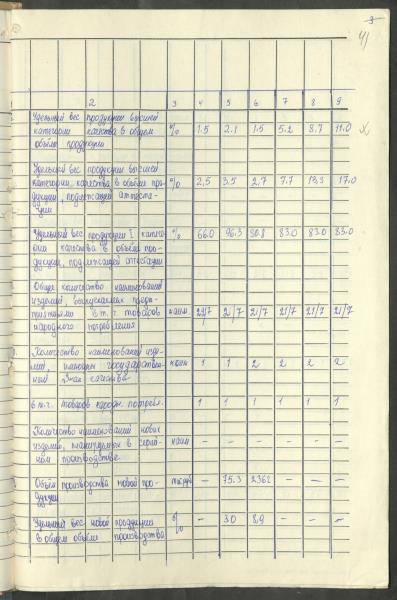 3
41
2 3 4 5 6 7 8 9
Удельный вес продукции высшей
категории качества в общем % 1.5 2.1 1.5 5.2 8.7 11.0
объёме продукции
Удельный вес продукции высшей
категории качества в объёме про- % 2,5 3.5 2.7 7.7 13.3 17.0
дукции, подлежащей аттеста-
ции
Удельный вес продукции I катего- % 66.0 96.3 90.8 83.0 83.0 83.0
рии качества в объёме про-
дукции, подлежащей аттестации
Общее количество наименований
изделий, выпускаемых пред-
приятиями в т.ч. товаров наим 22/7 21/7 21/7 21/7 21/7 21/7
народного потребления
Количество наименований изде-
лий, имеющих государствен- наим 1 1 2 2 2 2
ный Знак качества
в т.ч. товаров народн. потребл. 1 1 1 1 1 1
Количество наименований новых
изделий, планируемых в серий- наим – – – – – –
ном производстве
Объём производства новой про- тыс.руб – 75.3 236.2 – – –
дукции
Удельный вес новой продукции % – 3.0 8.9 – – –
в общем объёме производства